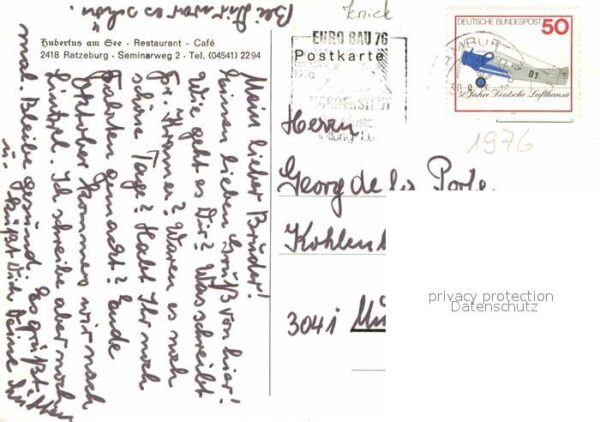 Bei Dir war es schön.
Hubertus am See · Restaurant · Café
2418 Ratzeburg · Seminarweg 2 · Tel. (04541) 2294
Mein lieber Bruder!
einen lieben Gruß von hier!
Wie geht es Dir? Was schreibt
Fr. Kramer? Waren es noch
schöne Tage? Habt Ihr noch
Fahrten gemacht? Ende
Oktober kommen wir nach
Lintzel. Ich schreibe aber noch
mal. Bleibe gesund. Es grüßt
u. küßt Dich Deine
EURO BAU 76
Postkarte
NORDERSTEDT
DEUTSCHE BUNDESPOST 50
50 Jahre Deutsche Lufthansa
01
1976
Herrn
Georg de la Porte
Kohlen
3041 Mü
privacy protection
Datenschutz